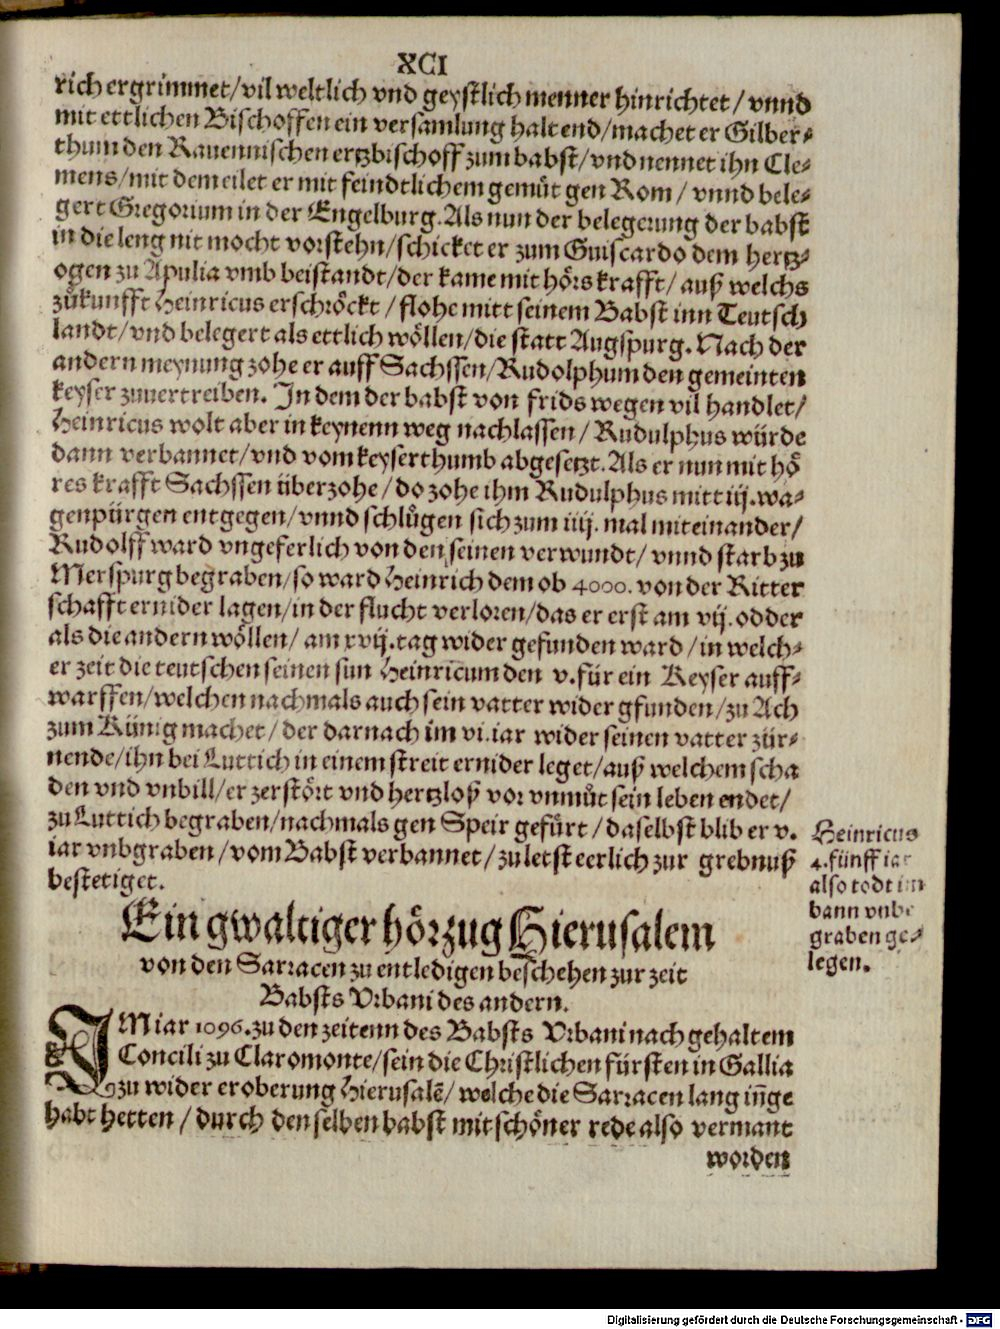 XCI
rich ergrimmet/vil weltlich vnd geystlich menner hinrichtet/vnnd
mit ettlichen Bischoffen ein versamlung haltend/machet er Gilber⸗
thum den Rauennischen ertzbischoff zum babst/vnd nennet ihn Cle⸗
mens/mit dem eilet er mit feindtlichem gemůt gen Rom/vnnd bele⸗
gert Gregorium in der Engelburg. Als nun der belegerung der babst
in die leng nit mocht vorstehn/schicket er zum Guiscardo dem hertz⸗
ogen zu Apulia vmb beistandt/der kame mit hörs krafft/auß welchs
zůkunfft Heinricus erschröckt/flohe mitt seinem Babst inn Teutsch
landt/vnd belegert als ettlich wöllen/die statt Augspurg. Nach der
andern meynung zohe er auff Sachssen/Rudolphum den gemeinten
keyser zuuertreiben. In dem der babst von frids wegen vil handlet/
Heinricus wolt aber in keynenn weg nachlassen/Rudulphus würde
dann verbannet/vnd vom keyserthumb abgesetzt. Als er nun mit hö
res krafft Sachssen überzohe/do zohe ihm Rudulphus mitt iij. wa⸗
genpürgen entgegen/vnnd schlůgen sich zum iiij. mal miteinander/
Rudolff ward vngeferlich von den seinen verwundt/vnnd starb zu
Merspurg begraben/so ward Heinrich dem ob 4000. von der Ritter
schafft ernider lagen/in der flucht verloren/das er erst am vij. odder
als die andern wöllen/am xvij. tag wider gefunden ward/in welch⸗
er zeit die teutschen seinen sun Heinricum den v. für ein Keyser auff⸗
warffen/welchen nachmals auch sein vatter wider gfunden/zu Ach
zum Künig machet/der darnach im vi. iar wider seinen vatter zür⸗
nende/ihn bei Luttich in einem streit ernider leget/auß welchem scha
den vnd vnbill/er zerstört vnd hertzloß vor vnmůt sein leben endet/
zu Luttich begraben/nachmals gen Speir gefürt/daselbst blib er v.
iar vnbgraben/vom Babst verbannet/zu letst eerlich zur grebnuß
bestetiget.
Heinricus
4. fünff iar
also todt im
bann vnbe
graben ge⸗
legen.
Ein gwaltiger hörzug Hierusalem
von den Sarracen zu entledigen beschehen zur zeit
Babsts Vrbani des andern.
IM iar 1096. zu den zeitenn des Babsts Vrbani nach gehaltem
Concili zu Claromonte/sein die Christlichen fürsten in Gallia
zu wider eroberung Hierusalē/welche die Sarracen lang iñge
habt hetten/durch den selben babst mit schöner rede also vermant
worden
Digitalisierung gefördert durch die Deutsche Forschungsgemeinschaft - DFG